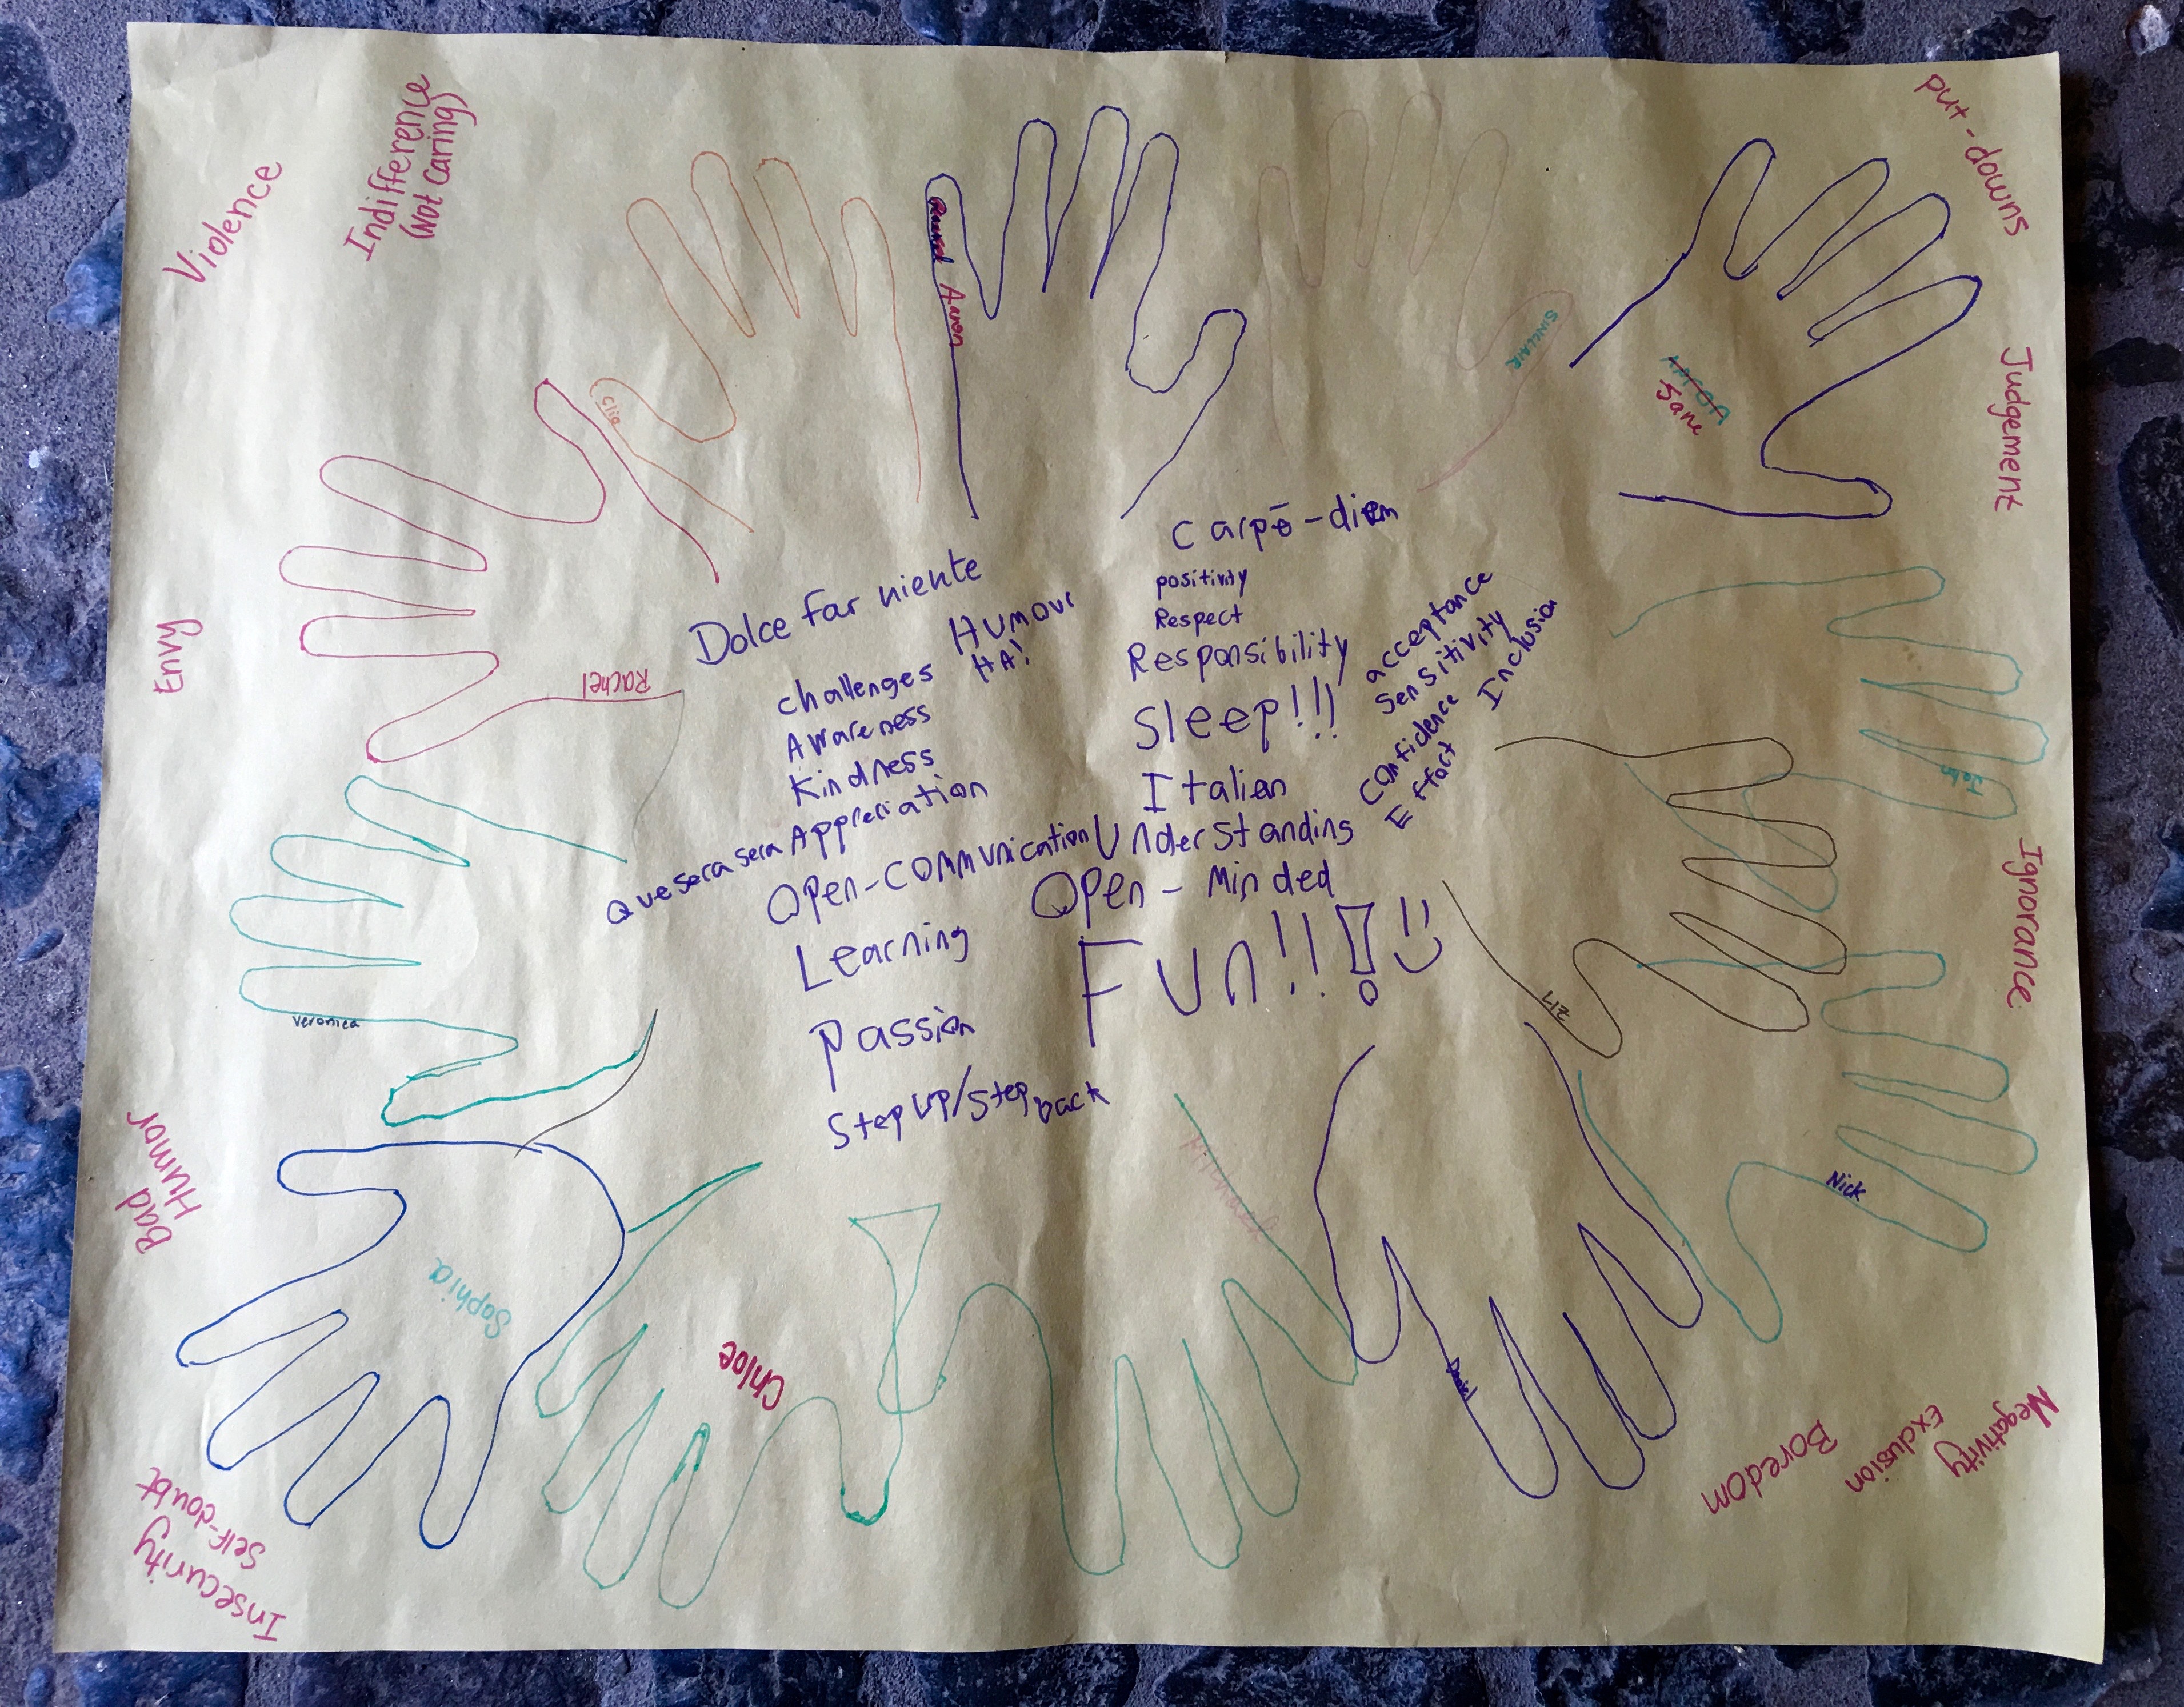 put-downs
Indifference
(Not Caring)
Violence
Clio
Anon
SINCLAIR
Jane
Judgement
Carpē-diem
Dolce far niente
Humour
HA!
positivity
Respect
Responsibility
acceptance
Sensitivity
Inclusion
Confidence
Effort
challenges
Awareness
Kindness
Appreciation
Que sera sera
Sleep!!!
Italian
Open-communication
Understanding
Open-Minded
Learning
Fun!!!
Passion
Step up/Step back
Envy
Rachel
John
Ignorance
Veronica
Nick
Michael
Bad
Humor
Sophia
Chloe
Daniel
Negativity
Exclusion
Boredom
Self-doubt
Insecurity